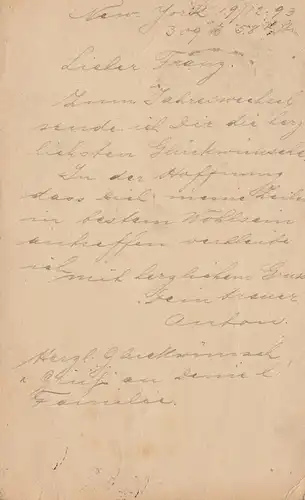 New-York 19/12.93
309 E 58 Str
Lieber Franz.
Zum Jahreswechsel
sende ich Dir die herz
lichsten Glückwünsche
In der Hoffnung
dass viel meine Zeilen
in bestem Wohlsein
antreffen verbleibe
ich mit herzlichem Gruss
Dein treuer
Anton.
Herzl. Glückwünsch
u. Grüße an deine l
Familie.